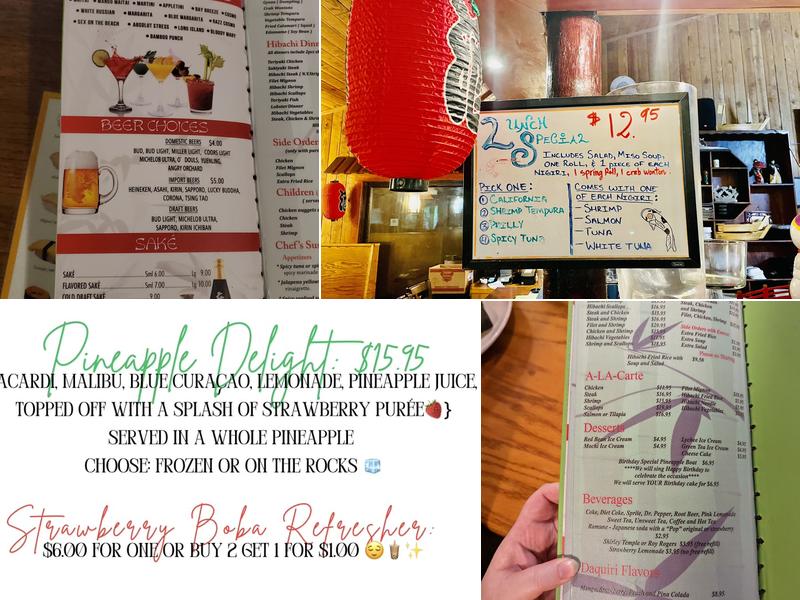 MAI TAI • MANGO MAITAI • MARTINI • APPLETINI • BAY BREEZE • COSMO
• WHITE RUSSIAN • MARGARITA • BLUE MARGARITA • RAZZ COSMO
• SEX ON THE BEACH • ABSOLUT STRESS • LONG ISLAND • BLOODY MARY
BAMBOO PUNCH
BEER CHOICES
DOMESTIC BEERS $4.00
BUD, BUD LIGHT, MILLER LIGHT, COORS LIGHT
MICHELOB ULTRA, O' DOULS, YUENLING,
ANGRY ORCHARD
IMPORT BEERS $5.00
HEINEKEN, ASAHI, KIRIN, SAPPORO, LUCKY BUDDHA,
CORONA, TSING TAO
DRAFT BEERS
BUD LIGHT, MICHELOB ULTRA,
SAPPORO, KIRIN ICHIBAN
SAKÉ
SAKÉ Sml 6.00 Lg 9.00
FLAVORED SAKÉ Sml 7.00 Lg 10.00
COLD DRAFT SAKÉ 9.00
Gyoza ( Dumpling )
Crab Wontons
Shrimp Tempura
Vegetable Tempura
Fried Calamari ( Squid )
Edamame ( Soy Bean )
Hibachi Dinn
All dinners include 2pcs sh
Teriyaki Chicken
Sukiyaki Steak
Hibachi Steak ( N.Y.Strip
Filet Mignon
Hibachi Shrimp
Hibachi Scallops
Teriyaki Fish
Lobster Dinner
Hibachi Vegetables
Steak, Chicken & Shri
Side Order
(only with pure
Chicken
Filet
Scallops
Extra Fried Rice
Children
Chicken nuggets
Chicken
Steak
Shrimp
Chef's Su
Appetizers
* Spicy tuna or
spicy marinade
* Jalapeno yellow
vinaigrette.
LUNCH $12.95
SPECIAL
INCLUDES SALAD, MISO SOUP,
ONE ROLL, & 1 PIECE OF EACH
NIGIRI, 1 spring Roll, 1 crab wonton.
PICK ONE:
① CALIFORNIA
② SHRIMP TEMPURA
③ PHILLY
④ SPICY TUNA
COMES WITH ONE
OF EACH NIGIRI:
- SHRIMP
- SALMON
- TUNA
- WHITE TUNA
Pineapple Delight: $15.95
ACARDI, MALIBU, BLUE CURAÇAO, LEMONADE, PINEAPPLE JUICE,
TOPPED OFF WITH A SPLASH OF STRAWBERRY PURÉE🍓}
SERVED IN A WHOLE PINEAPPLE
CHOOSE: FROZEN OR ON THE ROCKS 🧊
Strawberry Boba Refresher:
$6.00 FOR ONE/OR BUY 2 GET 1 FOR $1.00 😌🧋✨
Hibachi Scallops
Steak and Chicken $16.95
Steak and Shrimp
Filet and Shrimp $20.95
Chicken and Shrimp
Hibachi Vegetables
Shrimp and Scallops
Side Orders with Entrees
Extra Fried Rice
Extra Soup
Extra Salad
Hibachi Fried Rice with
Soup and Salad $9.50
A-LA-Carte
Chicken $11.95
Steak $16.95
Shrimp $15.95
Scallops
Salmon or Tilapia $16.95
Filet Mignon
Hibachi Fried Rice
Hibachi Noodle
Hibachi Vegetables
Desserts
Red Bean Ice Cream $4.95
Mochi Ice Cream $4.95
Lychee Ice Cream
Green Tea Ice Cream
Cheese Cake
Birthday Special Pineapple Boat $6.95
****We will sing Happy Birthday to
celebrate the occasion****
We will serve YOUR Birthday cake for $6.95
Beverages
Coke, Diet Coke, Sprite, Dr. Pepper, Root Beer, Pink Lemonade
Sweet Tea, Unsweet Tea, Coffee and Hot Tea
Ramune - Japanese soda with a "Pop" original or strawberry
$2.95
Shirley Temple or Roy Rogers $3.95 (free refill)
Strawberry Lemonade $3.95 (no free refill)
Daquiri Flavors
Mango, Strawberry, Peach and Pina Colada $8.95